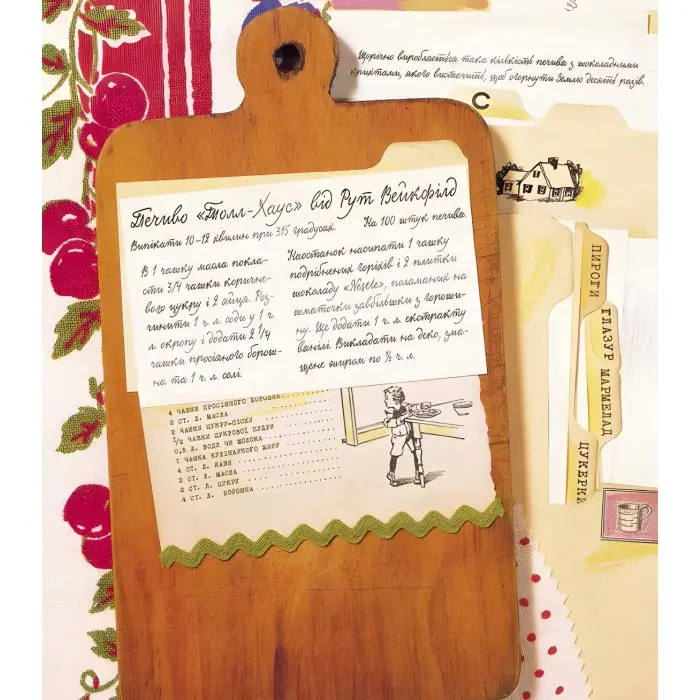 Щорічно виробляється така кількість печива з шоколадними
крихтами, якого вистачить, щоб огорнути Землю десять разів.
С
Печиво «Толл-Хаус» від Рут Вейкфілд
Випікати 10–12 хвилин при 315 градусах.
На 100 штук печива.
В 1 чашку масла покла-
сти 3/4 чашки коричне-
вого цукру і 2 яйця. Роз-
чинити 1 ч. л. соди у 1 ч.
л. окропу і додати 2 1/4
чашки просіяного борош-
на та 1 ч. л. солі.
Наостанок насипати 1 чашку
подрібнених горіхів і 2 плитки
шоколаду «Nestle», поламаних на
шматочки завбільшки з гороши-
ну. Ще додати 1 ч. л. екстракту
ванілі. Викладати на деко, зма-
щене жиром по ½ ч. л.
4 ЧАШКИ ПРОСІЯНОГО БОРОШНА
2 СТ. Л. МАСЛА
2 ЧАШКИ ЦУКРУ-ПІСКУ
1/2 ЧАШКИ ЦУКРОВОЇ ПУДРИ
0,5 Л. ВОДИ ЧИ МОЛОКА
1 ЧАШКА КУЛІНАРНОГО ЖИРУ
4 СТ. Л. КАВИ
2 СТ. Л. МАСЛА
2 СТ. Л. ЦУКРУ
4 СТ. Л. БОРОШНА
ПИРОГИ
ГЛАЗУР МАРМЕЛАД
ЦУКЕРКИ